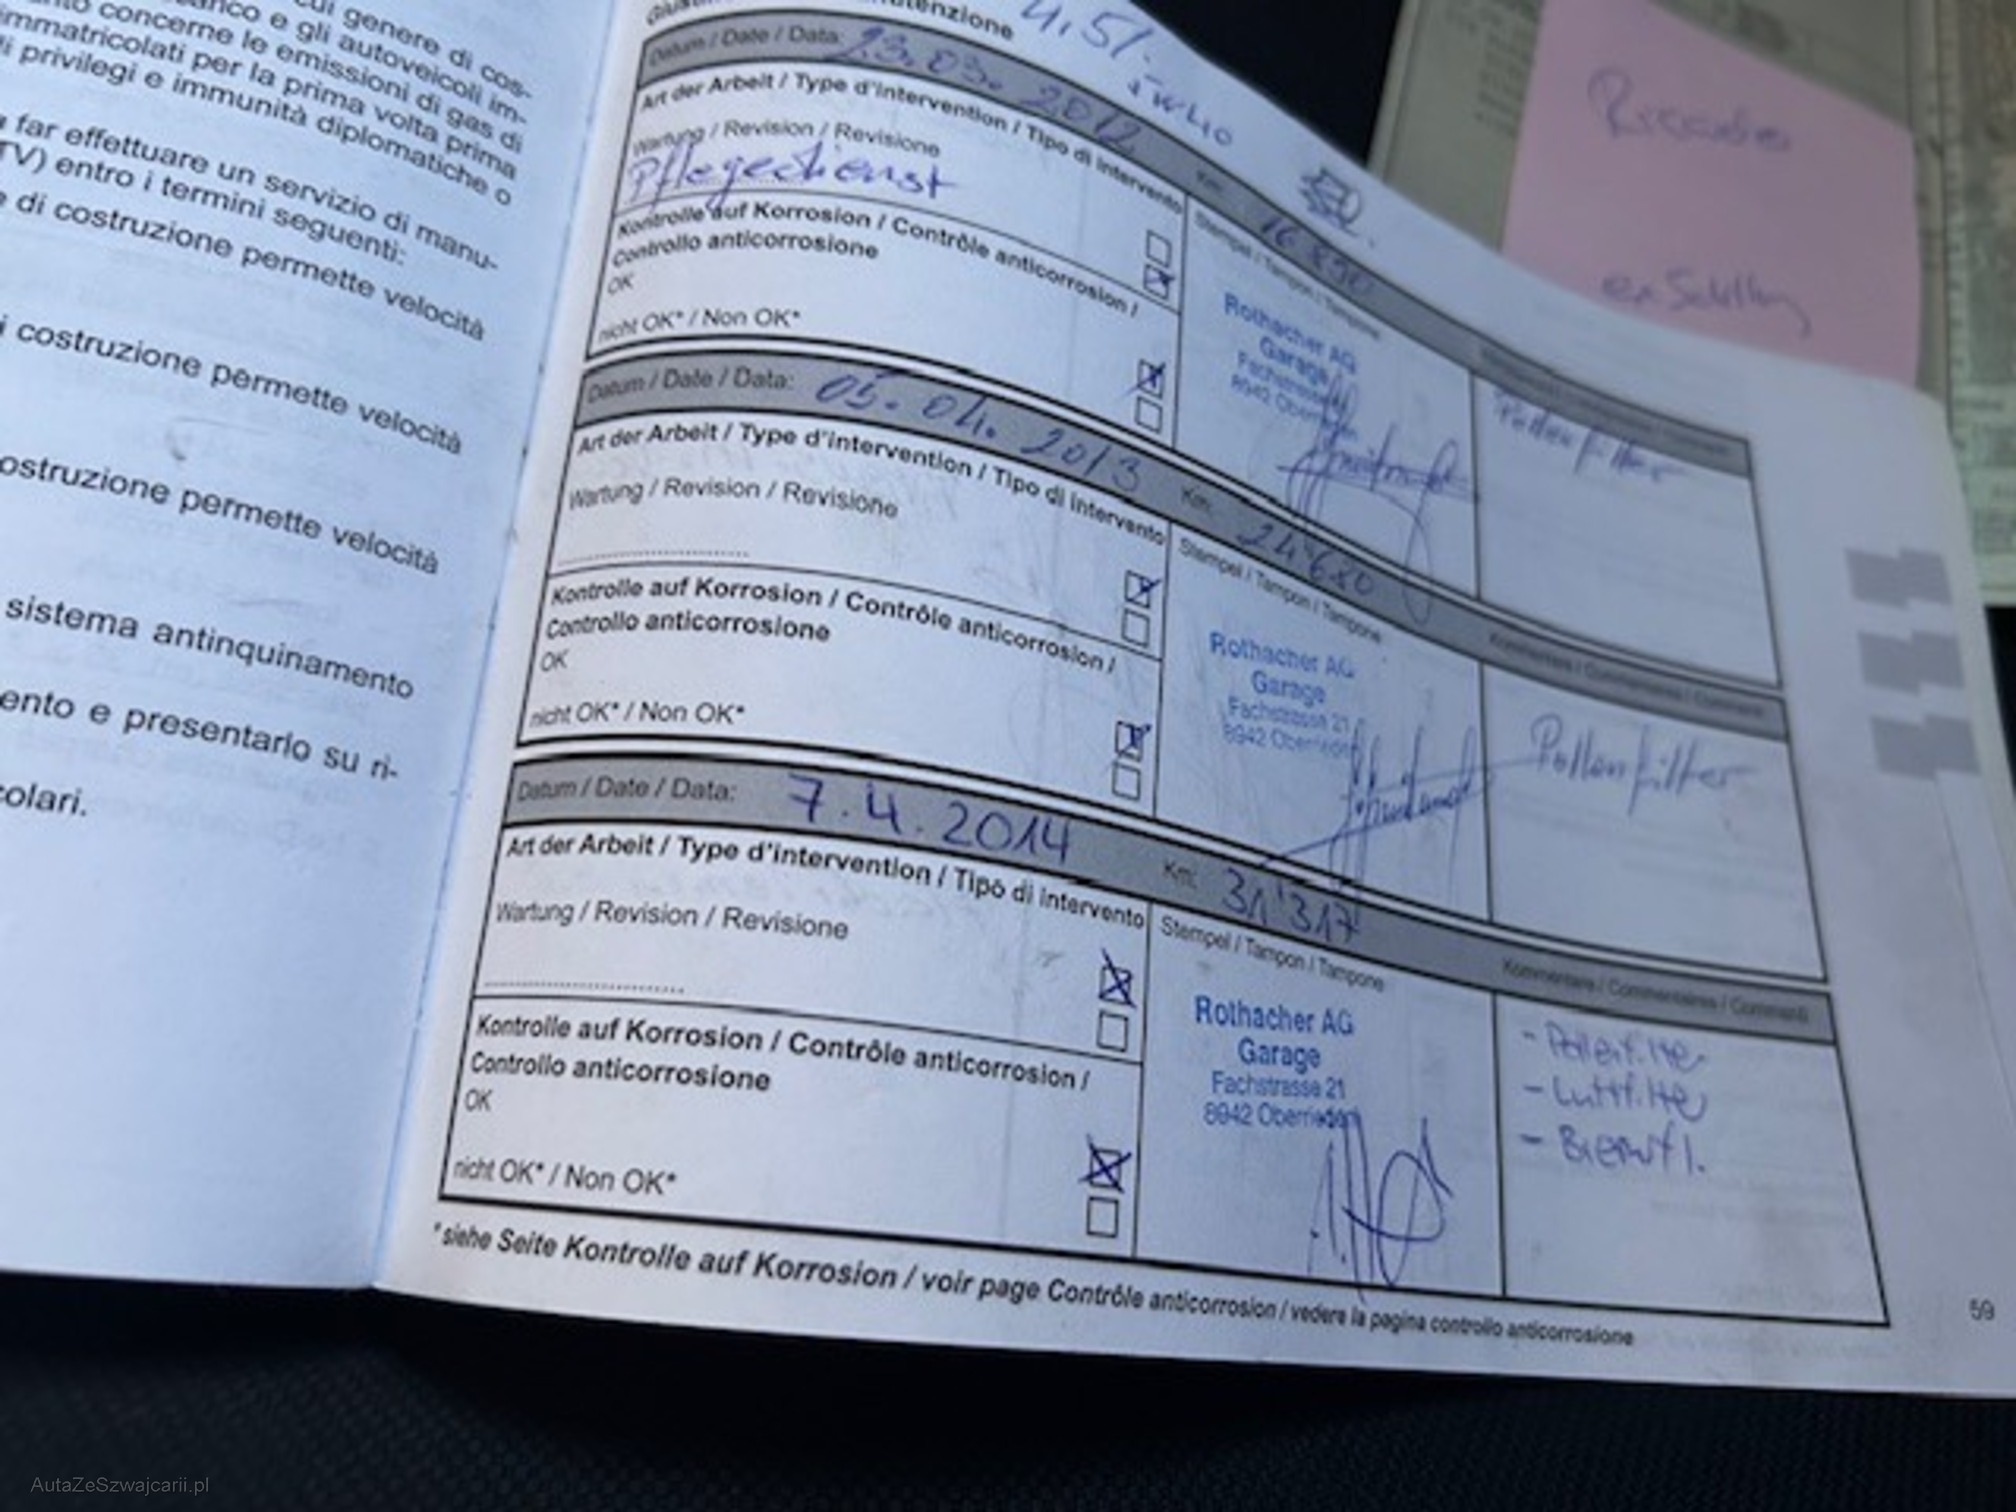 cui genere di cos-
anco e gli autoveicoli im-
concerne le emissioni di gas di
mmatricolati per la prima volta prima
li privilegi e immunità diplomatiche o
far effettuare un servizio di manu-
TV) entro i termini seguenti:
e di costruzione permette velocità
i costruzione permette velocità
ostruzione permette velocità
sistema antinquinamento
ento e presentarlo su ri-
colari.
4,5l.
5W40
Datum / Date / Data: 23.03.2012 Km:
Art der Arbeit / Type d'intervention / Tipo di intervento
Wartung / Revision / Revisione
Pflegedienst
Kontrolle auf Korrosion / Contrôle anticorrosion /
Controllo anticorrosione
OK
nicht OK* / Non OK*
Stempel / Tampon / Tampone
Rothacher AG
Garage
Fachstrasse
8942 Oberrieden
Pollenfilter
Datum / Date / Data: 05.04.2013 Km: 24'680
Art der Arbeit / Type d'intervention / Tipo di intervento
Wartung / Revision / Revisione
Kontrolle auf Korrosion / Contrôle anticorrosion /
Controllo anticorrosione
OK
nicht OK* / Non OK*
Stempel / Tampon / Tampone
Rothacher AG
Garage
Fachstrasse 21
8942 Oberrieden
Kommentare / Commentaires / Commenti
Pollenfilter
Datum / Date / Data: 7.4.2014 Km: 31'317
Art der Arbeit / Type d'intervention / Tipo di intervento
Wartung / Revision / Revisione
Kontrolle auf Korrosion / Contrôle anticorrosion /
Controllo anticorrosione
OK
nicht OK* / Non OK*
Stempel / Tampon / Tampone
Rothacher AG
Garage
Fachstrasse 21
8942 Oberrieden
Kommentare / Commentaires / Commenti
- Pollenfilter
- Luftfilter
- Bremsfl.
* siehe Seite Kontrolle auf Korrosion / voir page Contrôle anticorrosion / vedere la pagina controllo anticorrosione
59
AutaZeSzwajcarii.pl